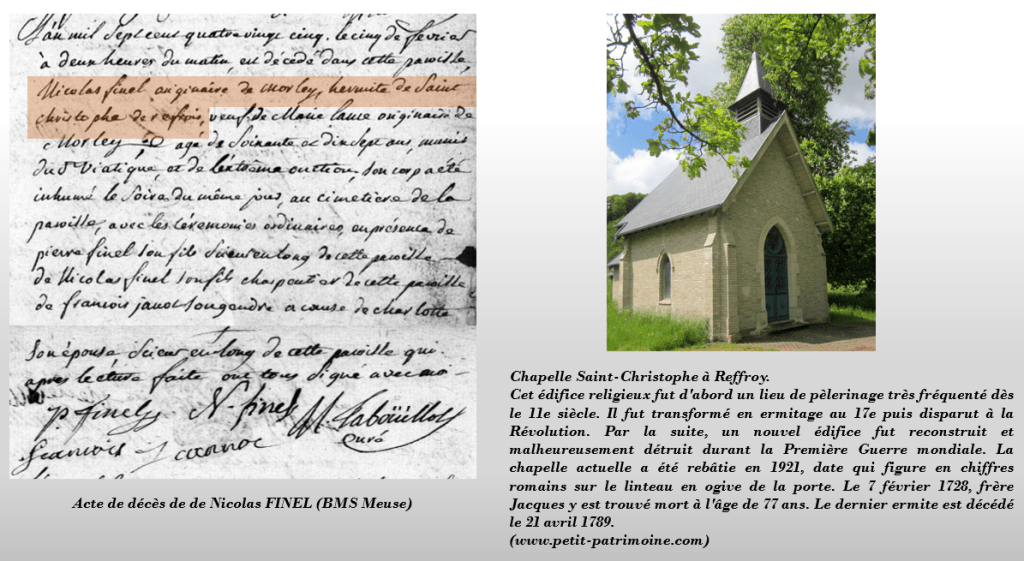 L'an mil sept cent quatre vingt cinq. le cinq de fevrier
à deux heures du matin, est décédé dans cette paroisse
Nicolas finel originaire de Morley, hermite de Saint
christophe de refroi, veuf de Marie originaire de
Morley age de Soixante et dix sept ans, munis
du St Viatique et de lextreme onction, son corp a eté
inhumé le Soire du même jour, au cimetiere de la
paroisse, avec les Ceremonies ordinaires, en présence de
pierre finel son fils Scieur en long de cette paroisse
de Nicolas finel son fils charpentier de cette paroisse
de francois janot son gendre a cause de charlotte
Son épouse Scieur en long de cette paroisse qui
apres lecture faite ont tous signe avec moi
p. finel N. finel M. Laboüillot
curé
francois
Acte de décès de de Nicolas FINEL (BMS Meuse)
Chapelle Saint-Christophe à Reffroy.
Cet édifice religieux fut d'abord un lieu de pèlerinage très fréquenté dès
le 11e siècle. Il fut transformé en ermitage au 17e puis disparut à la
Révolution. Par la suite, un nouvel édifice fut reconstruit et
malheureusement détruit durant la Première Guerre mondiale. La
chapelle actuelle a été rebâtie en 1921, date qui figure en chiffres
romains sur le linteau en ogive de la porte. Le 7 février 1728, frère
Jacques y est trouvé mort à l'âge de 77 ans. Le dernier ermite est décédé
le 21 avril 1789.
(www.petit-patrimoine.com)